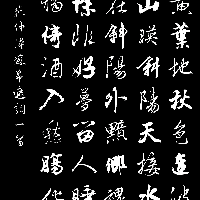 黄葉地秋色連波
山映斜陽天接水
在斜陽外黯鄉魂
除非好夢留人睡
獨倚酒入愁腸化
范仲淹蘇幕遮詞一首